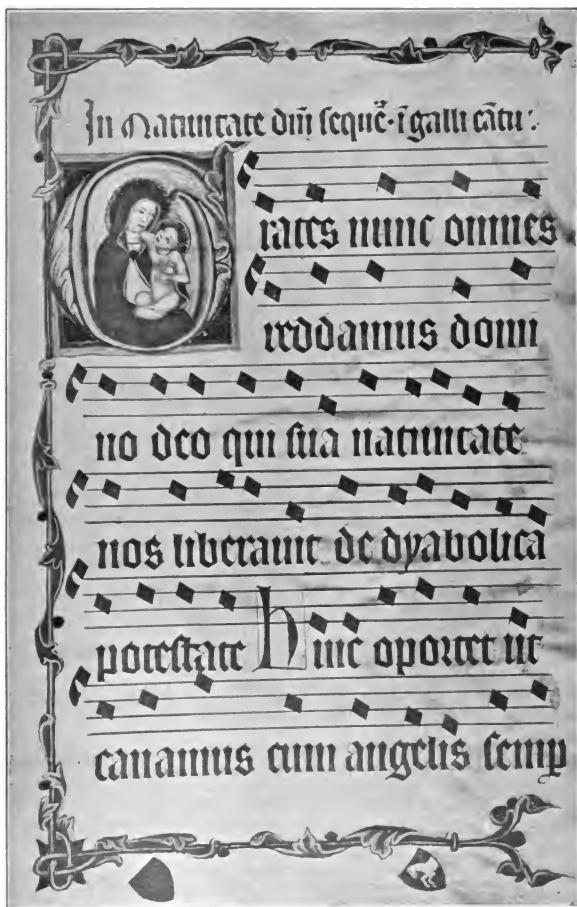 In Natiuitate dnī sequē· ī galli cātu:
Grates nunc omnes
reddamus domi
no deo qui sua natiuitate
nos liberauit de dyabolica
potestate huic oportet ut
canamus cum angelis semp